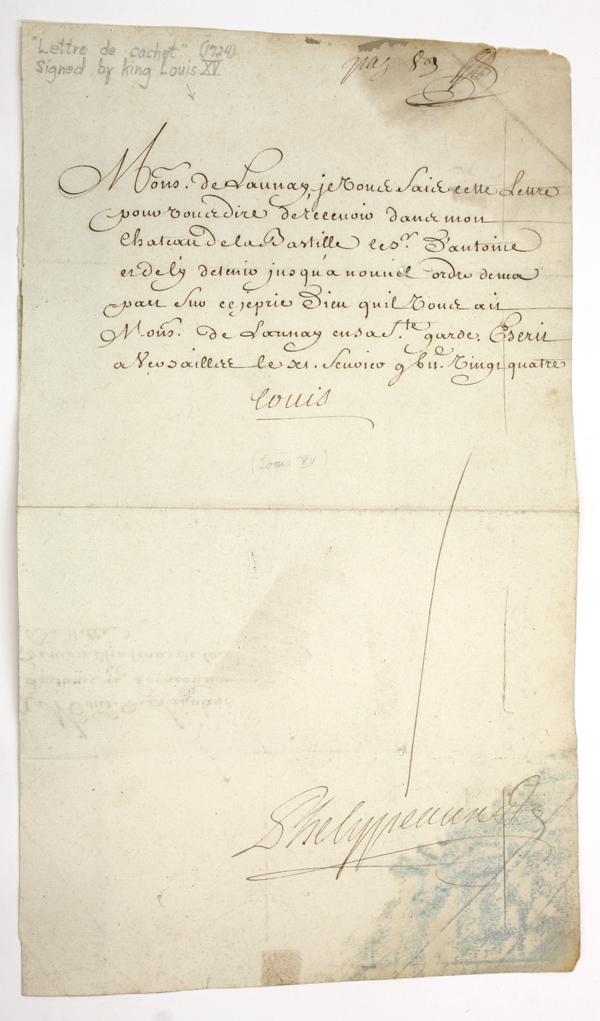 "Lettre de cachet" (1724)
Signed by king Louis XV
pag 83
Mons. de Launay, je vous fais cette Lettre
pour vous dire de recevoir dans mon
Chateau de la Bastille le Sr. Dantoine
et de l'y detenir jusqu'a nouvel ordre de ma
part Sur ce je prie Dieu qu'il vous ait
Mons. de Launay en sa Ste. garde. Escrit
a Versailles le xi. Fevrier vingt quatre
Louis
(Louis XV)
Phelypeaux